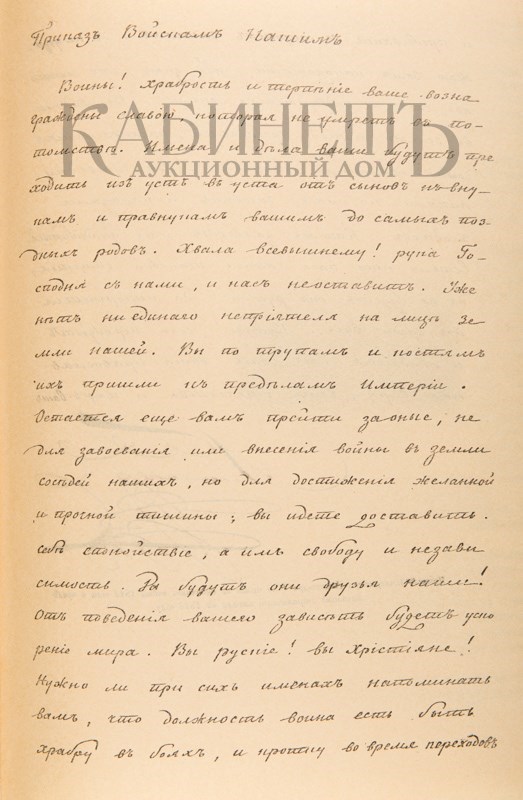 Приказъ Войскамъ Нашимъ
Воины! храбрость и терпѣніе ваше возна
граждены славою, которая не умретъ въ по-
томствѣ. Имена и дѣла ваши будутъ пре
ходить изъ устъ въ уста отъ сыновъ къ вну-
камъ и правнукамъ вашимъ до самыхъ поз-
дныхъ родовъ. Хвала всевышнему! рука Го-
сподня съ нами, и насъ неоставитъ. Уже
нѣтъ ни единаго непріятеля на лицѣ Зе
мли нашей. Вы по трупамъ и костямъ
ихъ пришли къ предѣламъ Имперіи.
Остается еще вамъ прейти за оные, не
для завоеванія или внесенія войны въ земли
сосѣдей нашихъ, но для достиженія желанной
и прочной тишины; вы идете доставить
себѣ спокойствіе, а имъ свободу и незави
симость. Да будутъ они друзья наши!
Отъ поведенія вашего зависѣть будетъ уско
реніе мира. Вы рускіе! вы Христіяне!
Нужно ли при сихъ именахъ напоминать
вамъ, что должность воина есть быть
храбру въ бояхъ, и кротку во время переходовъ
КАБИНЕТЪ
АУКЦИОННЫЙ ДОМ